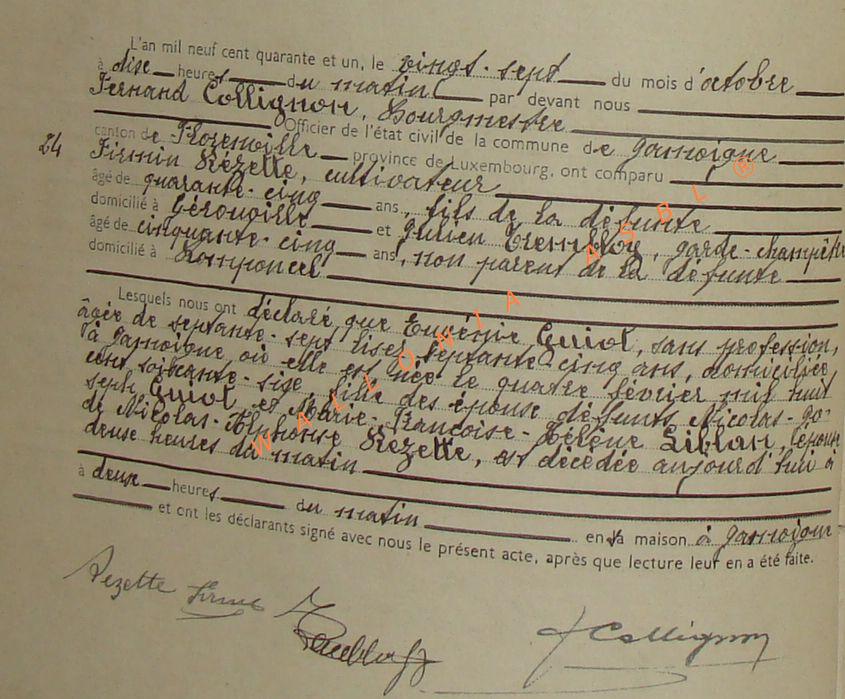 L'an mil neuf cent quarante et un, le vingt-sept du mois d'octobre
à dise heures du matin par devant nous
Fernand Collignon, Bourgmestre
Officier de l'état civil de la commune de Jamoigne
24
canton de Florenville province de Luxembourg, ont comparu
Firmin Rézette, cultivateur
âgé de quarante-cinq ans, fils de la défunte
domicilié à Gérouville et Julien Trembloy, garde-champêtre
âgé de cinquante-cinq ans, non parent de la défunte
domicilié à
Lesquels nous ont déclaré que Eugénie Guiot, sans profession,
âgée de septante-sept lisez septante-cinq ans, domiciliée
à Jamoigne où elle est née le quatre février mil huit
cent soixante-sise, fille des épouse défunts Nicolas-Jo-
seph Guiot et Marie-Françoise-Hélène Liblan, épouse
de Nicolas-Alphonse Rézette, est décédée aujourd'hui à
deuse heures du matin
à deuse heures du matin en sa maison à Jamoigne
et ont les déclarants signé avec nous le présent acte, après que lecture leur en a été faite.
Rezette Firmin
Trembloy
J Collignon
WALLONIA ASBL ®